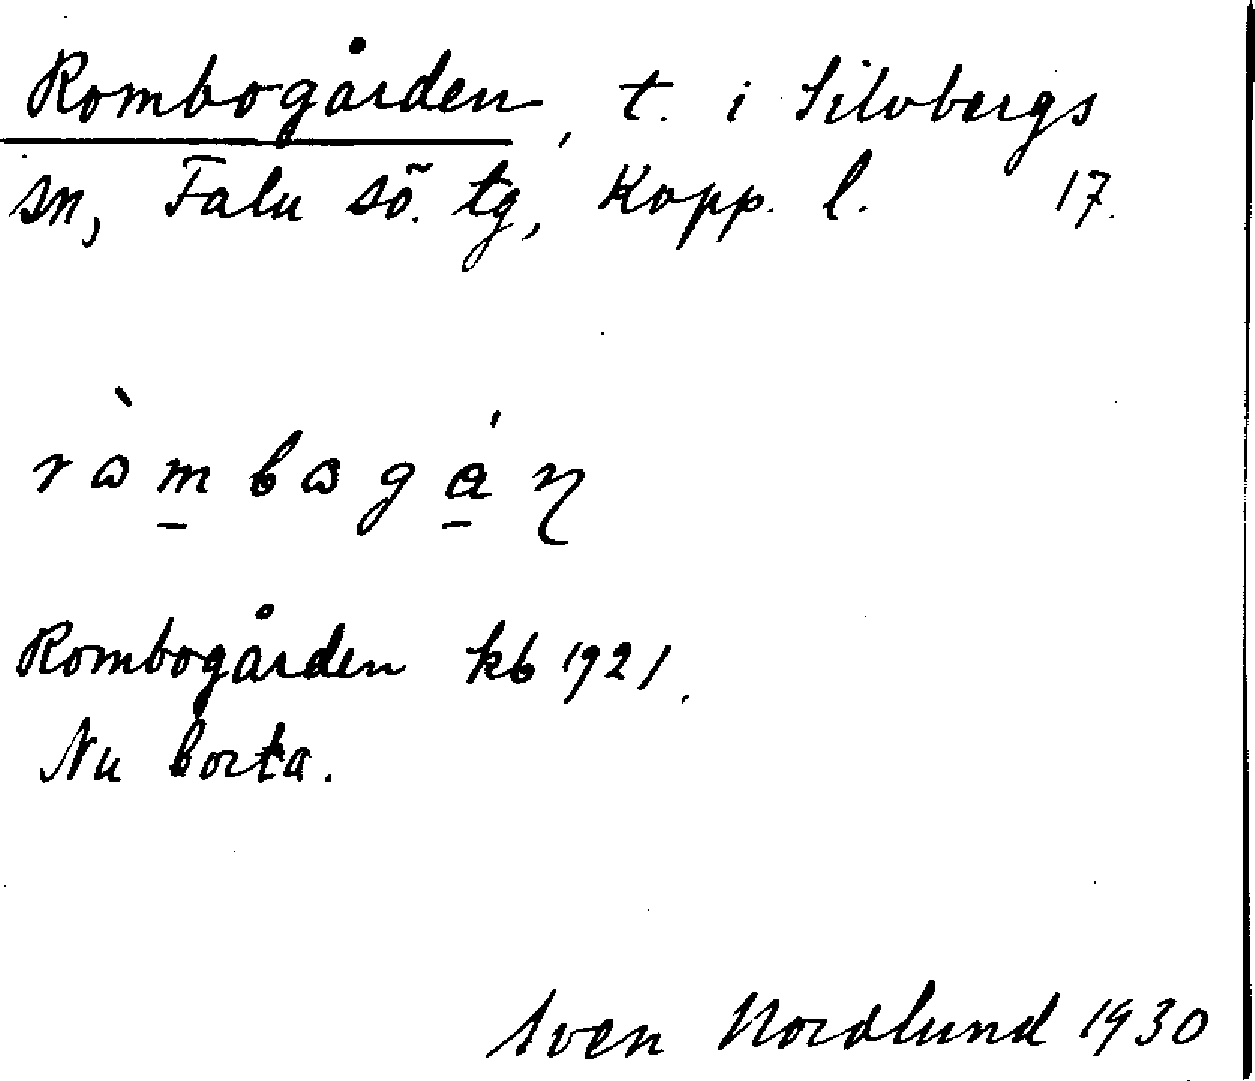 Rombogården, t. i Silvbergs
sn, Falu sö. tg, Kopp. l. 17.
Rombogården kb 1921.
Nu borta.
Sven Nordlund 1930